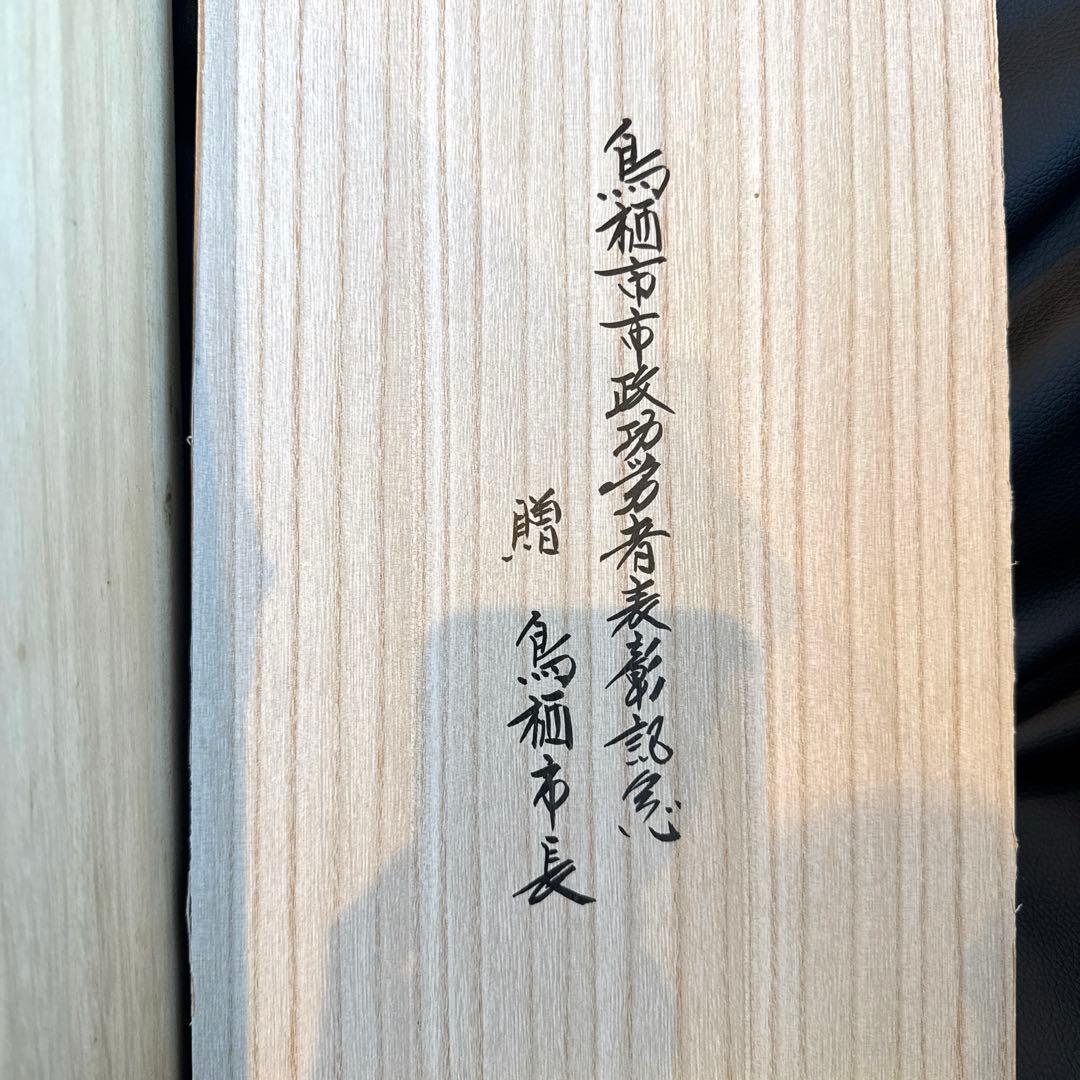 鳥栖市市政功労者表彰記念
贈 鳥栖市長